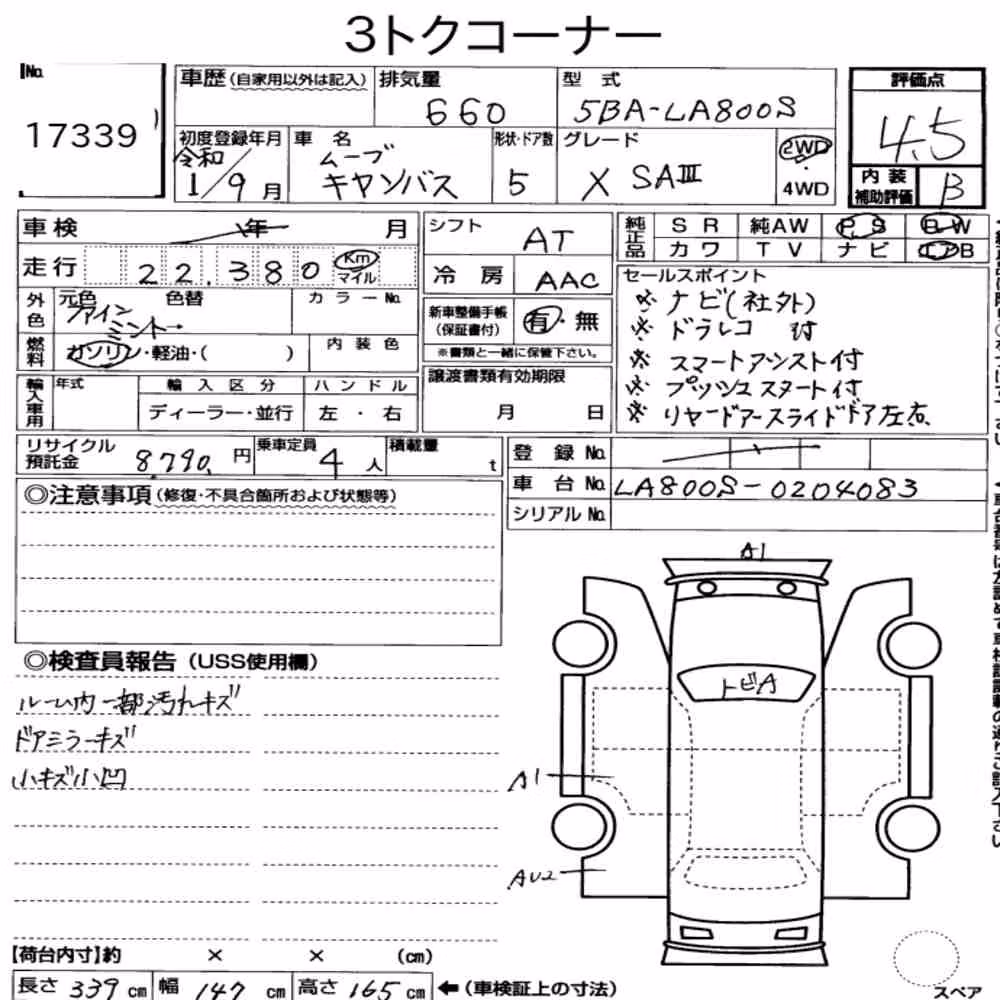 3トクコーナー
No.
17339
車歴(自家用以外は記入)
排気量
660
型式
5BA-LA800S
評価点
4.5
初度登録年月
令和
1/9月
車名
ムーブ
キャンバス
形状・ドア数
5
グレード
X SAⅢ
2WD
・
4WD
内装
補助評価
B
車検
年
月
シフト
AT
純正品
SR
純AW
PS
PW
カワ
TV
ナビ
エアB
走行
22,380
Km
マイル
冷房
AAC
外色
元色
色替
カラーNo.
ファイン
ミント
新車整備手帳
(保証書付)
有・無
※書類と一緒に保管下さい。
セールスポイント
※ナビ(社外)
※ドラレコ 付
※スマートアシスト付
※プッシュスタート付
※リヤードアースライドドア左右
燃料
ガソリン・軽油・( )
内装色
輸入車用
年式
輸入区分
ハンドル
ディーラー・並行
左・右
譲渡書類有効期限
月 日
リサイクル
預託金
8,790.円
乗車定員
4人
積載量
t
登録No.
車台No.
LA800S-0204083
シリアルNo.
◎注意事項(修復・不具合箇所および状態等)
◎検査員報告(USS使用欄)
ルーム内一部汚れキズ
ドアミラーキズ
小キズ小凹
A1
トビA
A1
AU2
【荷台内寸】約 × × (cm)
長さ 339 cm
幅 147 cm
高さ 165 cm
←(車検証上の寸法)
スペア